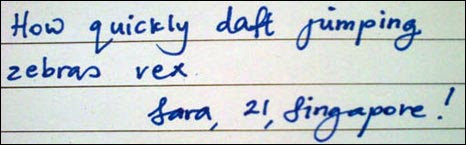 How quickly daft jumping
zebras vex.
Sara, 21, Singapore!